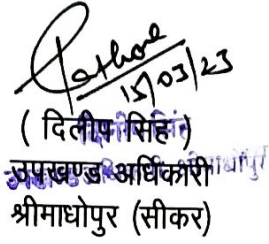 Rathore
15/03/23
( दिलीप सिंह )
उपखण्ड अधिकारी
श्रीमाधोपुर (सीकर)